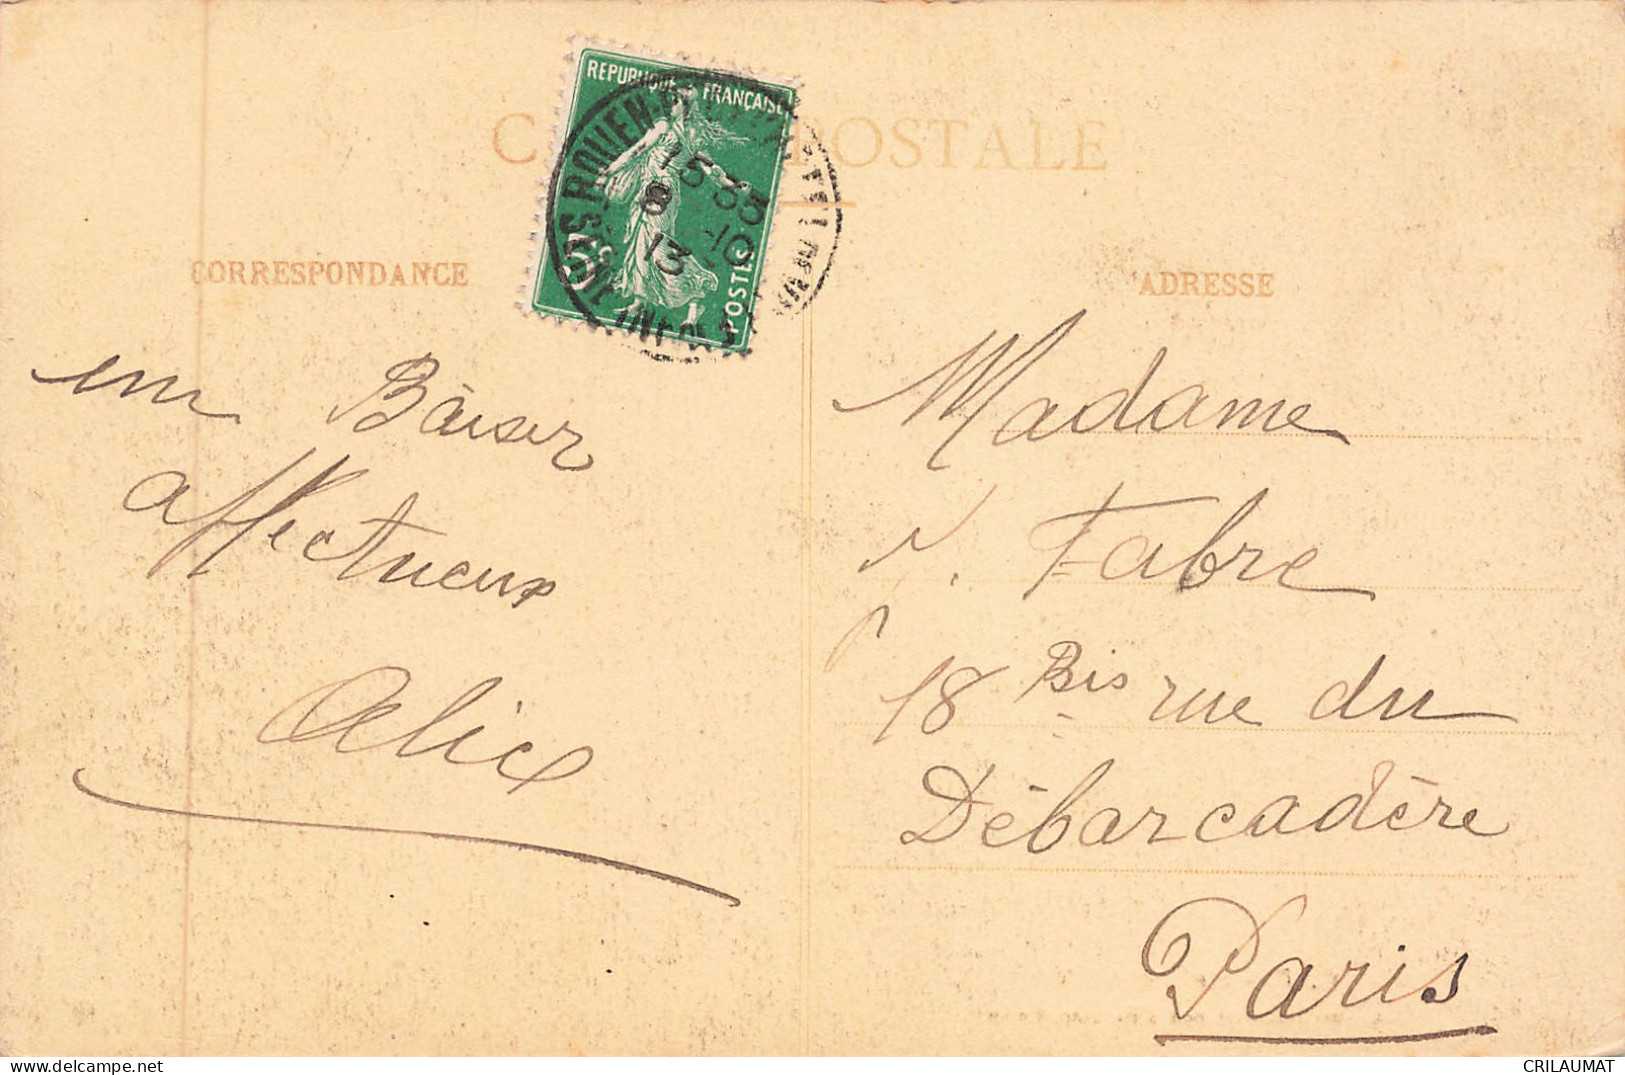 CARTE POSTALE
REPUBLIQUE FRANÇAISE
POSTES
ROUEN
15 35
8 10
13
CORRESPONDANCE
ADRESSE
un Baiser
affectueux
Alice
Madame
Fabre
18 Bis rue du
Débarcadère
Paris
delcampe.net
CRILAUMAT